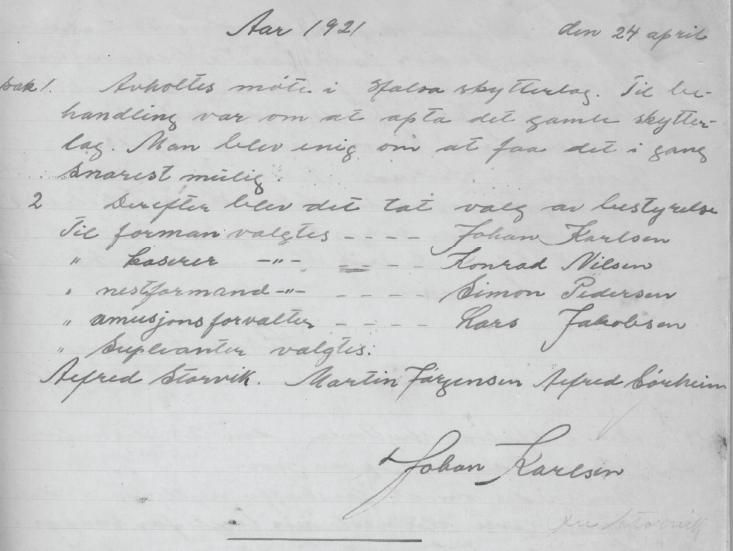 Aar 1921 den 24 april
sak 1. Avholtes møte i Halsa skytterlag. Til be-
handling var om at apta det gamle skytter-
lag. Man blev enig om at faa det i gang
snarest mulig.
2 Derefter blev det tat valg av bestyrelse
Til forman valgtes - - - - Johan Karlsen
" kaserer -"- - - - Konrad Nilsen
" nestformand -"- - - - - Simon Pedersen
" amusjonsforvalter - - - - Lars Jakobsen
" Suplianter valgtes:
Alfred Storvik. Martin Jørgensen Alfred Sørheim
Johan Karlsen